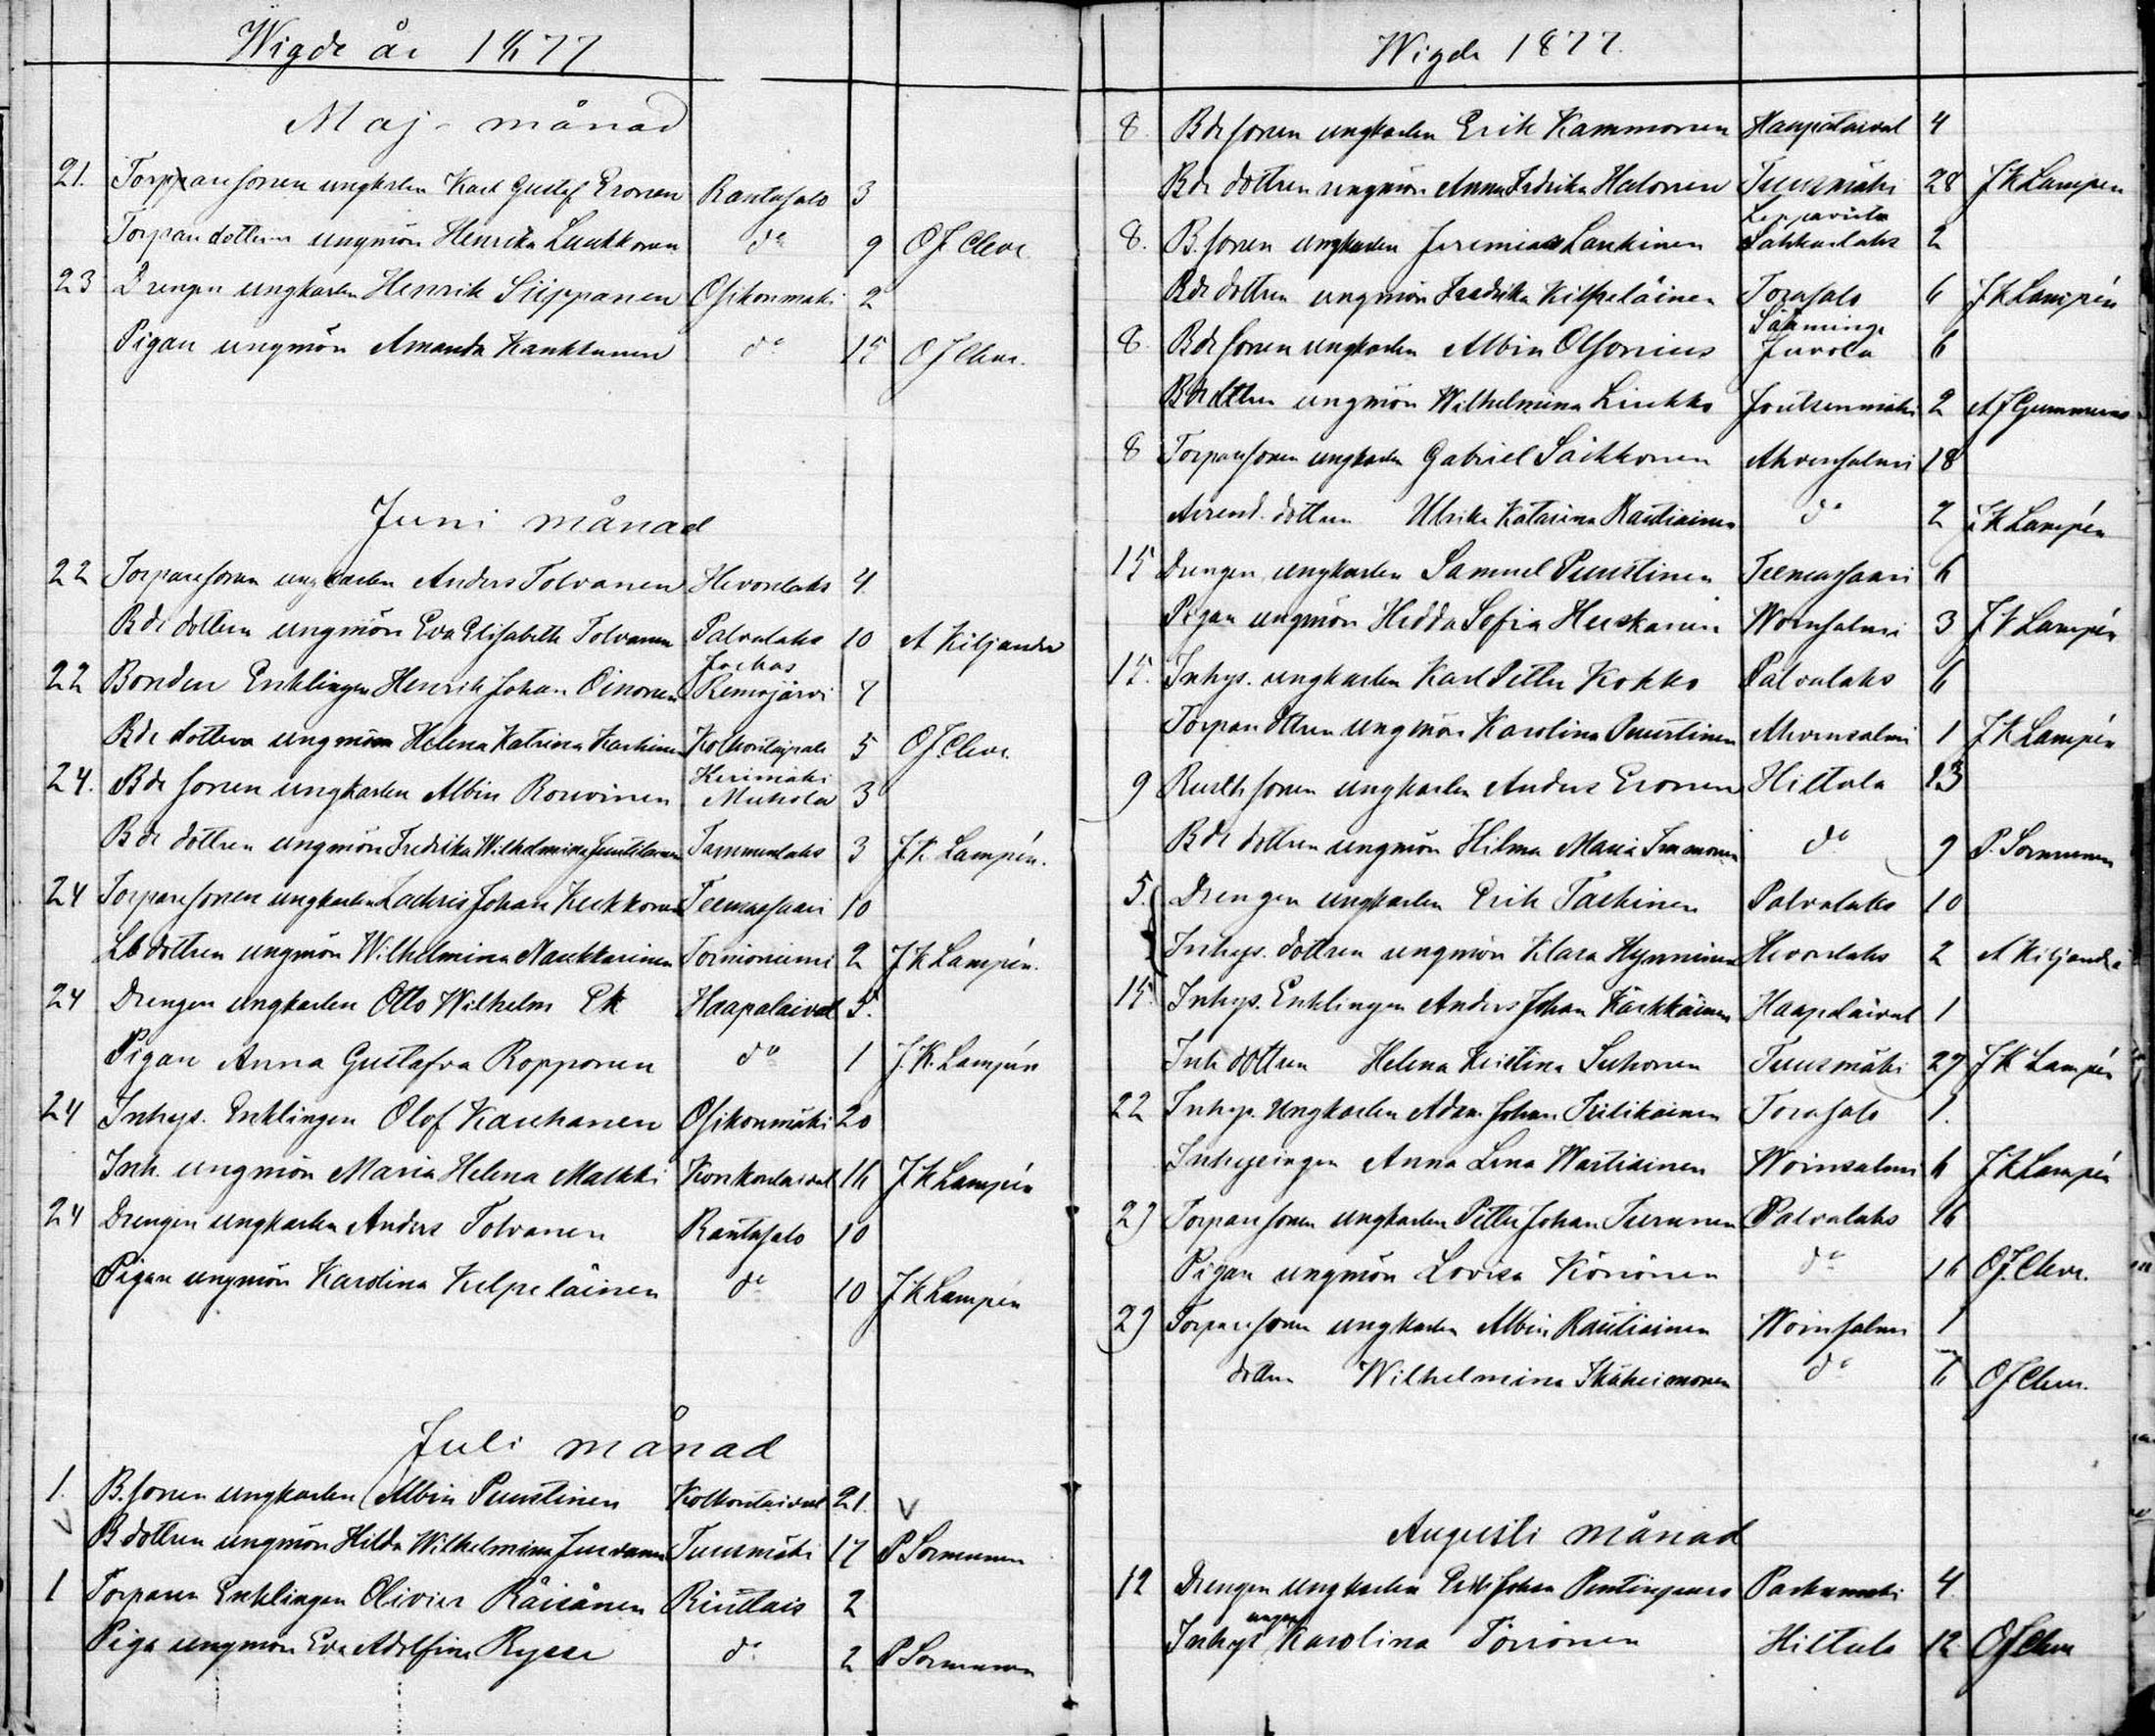 Wigde år 1877
Maj-månad
21. Torparesonen ungkarlen Karl Gustaf Eronen Rantasalo 3
Torpare dottren ungmön Henrika Luukkonen do 9 O J Cleve
23 Drengen ungkarlen Henrik Siippanen Osikonmäki 2
Pigan ungmön Amanda Kankkunen do 15 O J Cleve.
Juni månad
22 Torparesonen ungkarlen Anders Tolvanen Hevonlaks 4
Bde dottren ungmön Eva Elisabeth Tolvanen Palvalaks 10 A Kiljander
Jockas
22 Bonden Enklingen Henrik Johan Oinonen Remojärvi 7
Bde dottren ungmön Helena Katrina Karhinen Kolkontaipale 5 O J Cleve.
Kerimäki
24. Bde sonen ungkarlen Albin Rouvinen Muhola 3
Bde dottren ungmön Fredrika Wilhelmina Juutilainen Tammenlaks 3 J. K. Lampén.
24 Torparesonen ungkarlen Zachris Johan Kukkonen Teemassaari 10
Lb dottren ungmön Wilhelmina Naukkarinen Torniouniemi 2 J K Lampén.
24 Drengen ungkarlen Otto Wilhelm Ek Haapalaival 5.
Pigan Anna Gustafva Ropponen do 1 J. K. Lampén
24 Inhys. Enklingen Olof Kauhanen Osikonmäki 20
Inh. ungmön Maria Helena Malkki Konkontaival 16 J K Lampén
24 Drengen ungkarlen Anders Tolvanen Rantasalo 10
Pigan ungmön Karolina Kilpeläinen do 10 J K Lampén
Juli månad
1. B. sonen ungkarlen Albin Puustinen Kolkontaival 21. v
v B dottren ungmön Hilda Wilhelmina Juvanen Tuusmäki 17 P Sormunen
1 Torparen Enklingen Olivier Räisänen Rinttais 2
Piga ungmön Eva Adolfina Rysse do 2 P Sormunen
Wigde 1877.
8. Bde sonen ungkarlen Erik Kammonen Haapataival 4
Bde dottren ungmön Anna Fredrika Halonen Tuusmäki 28 J K Lampén
Leppävirta
8. B. sonen ungkarlen Jeremias Laukinen Sahkarlaks 2
Bde dottren ungmön Fredrika Kilpeläinen Torasalo 6 J K Lampén
Sääminge
8. Bde sonen ungkarlen Albin Olsonius Juvola 6
Bde dttren ungmön Wilhelmina Liukko Joutsenmäki 2 A J Gummerus
8 Torparesonen ungkarlen Gabriel Säikkonen Ahvensalmi 18
Arrend. dottren Ulrika Katarina Rautiainen do 2 J K Lampén
15 Drengen ungkarlen Samuel Puustinen Teemassaari 6
Pigan ungmön Hedda Sofia Heiskanen Woinsalmi 3 J K Lampén
15. Inhys. ungkarlen Karl Petter Kokko Palvalaks 6
Torpare dttren ungmön Karolina Puustinen Ahvensalmi 1 J K Lampén
9 Rusth sonen ungkarlen Anders Eronen Hiltula 13
Bde dottren ungmön Hilma Maria Immonen do 9 P. Sormunen
5. Drengen ungkarlen Erik Tarkinen Palvalaks 10
Inhys. dottren ungmön Klara Hynninen Hevonlaks 2 A Kiljander
15. Inhys. Enklingen Anders Johan Kärkkäinen Haapalaival 1
Inh dottren Helena Kristina Suhonen Tuusmäki 27 J K Lampén
22 Inhys. Ungkarlen Adam Johan Tiilikainen Torasalo 1.
Inhysingen Anna Lena Wartiainen Woinsalmi 6 J K Lampén
29 Torparesonen ungkarlen Petter Johan Turunen Palvalaks 16
Pigan ungmön Lovisa Könönen do 16 O J. Cleve.
29 Torparesonen ungkarlen Albin Rautiainen Woinsalmi 1
dottren Wilhelmina Ikäheimonen do 6 O J Cleve.
Augusti månad
12 Drengen ungkarlen Erik Johan Parkumäki 4
Inhys Karolina Törrönen Hiltula 12 O J Cleve